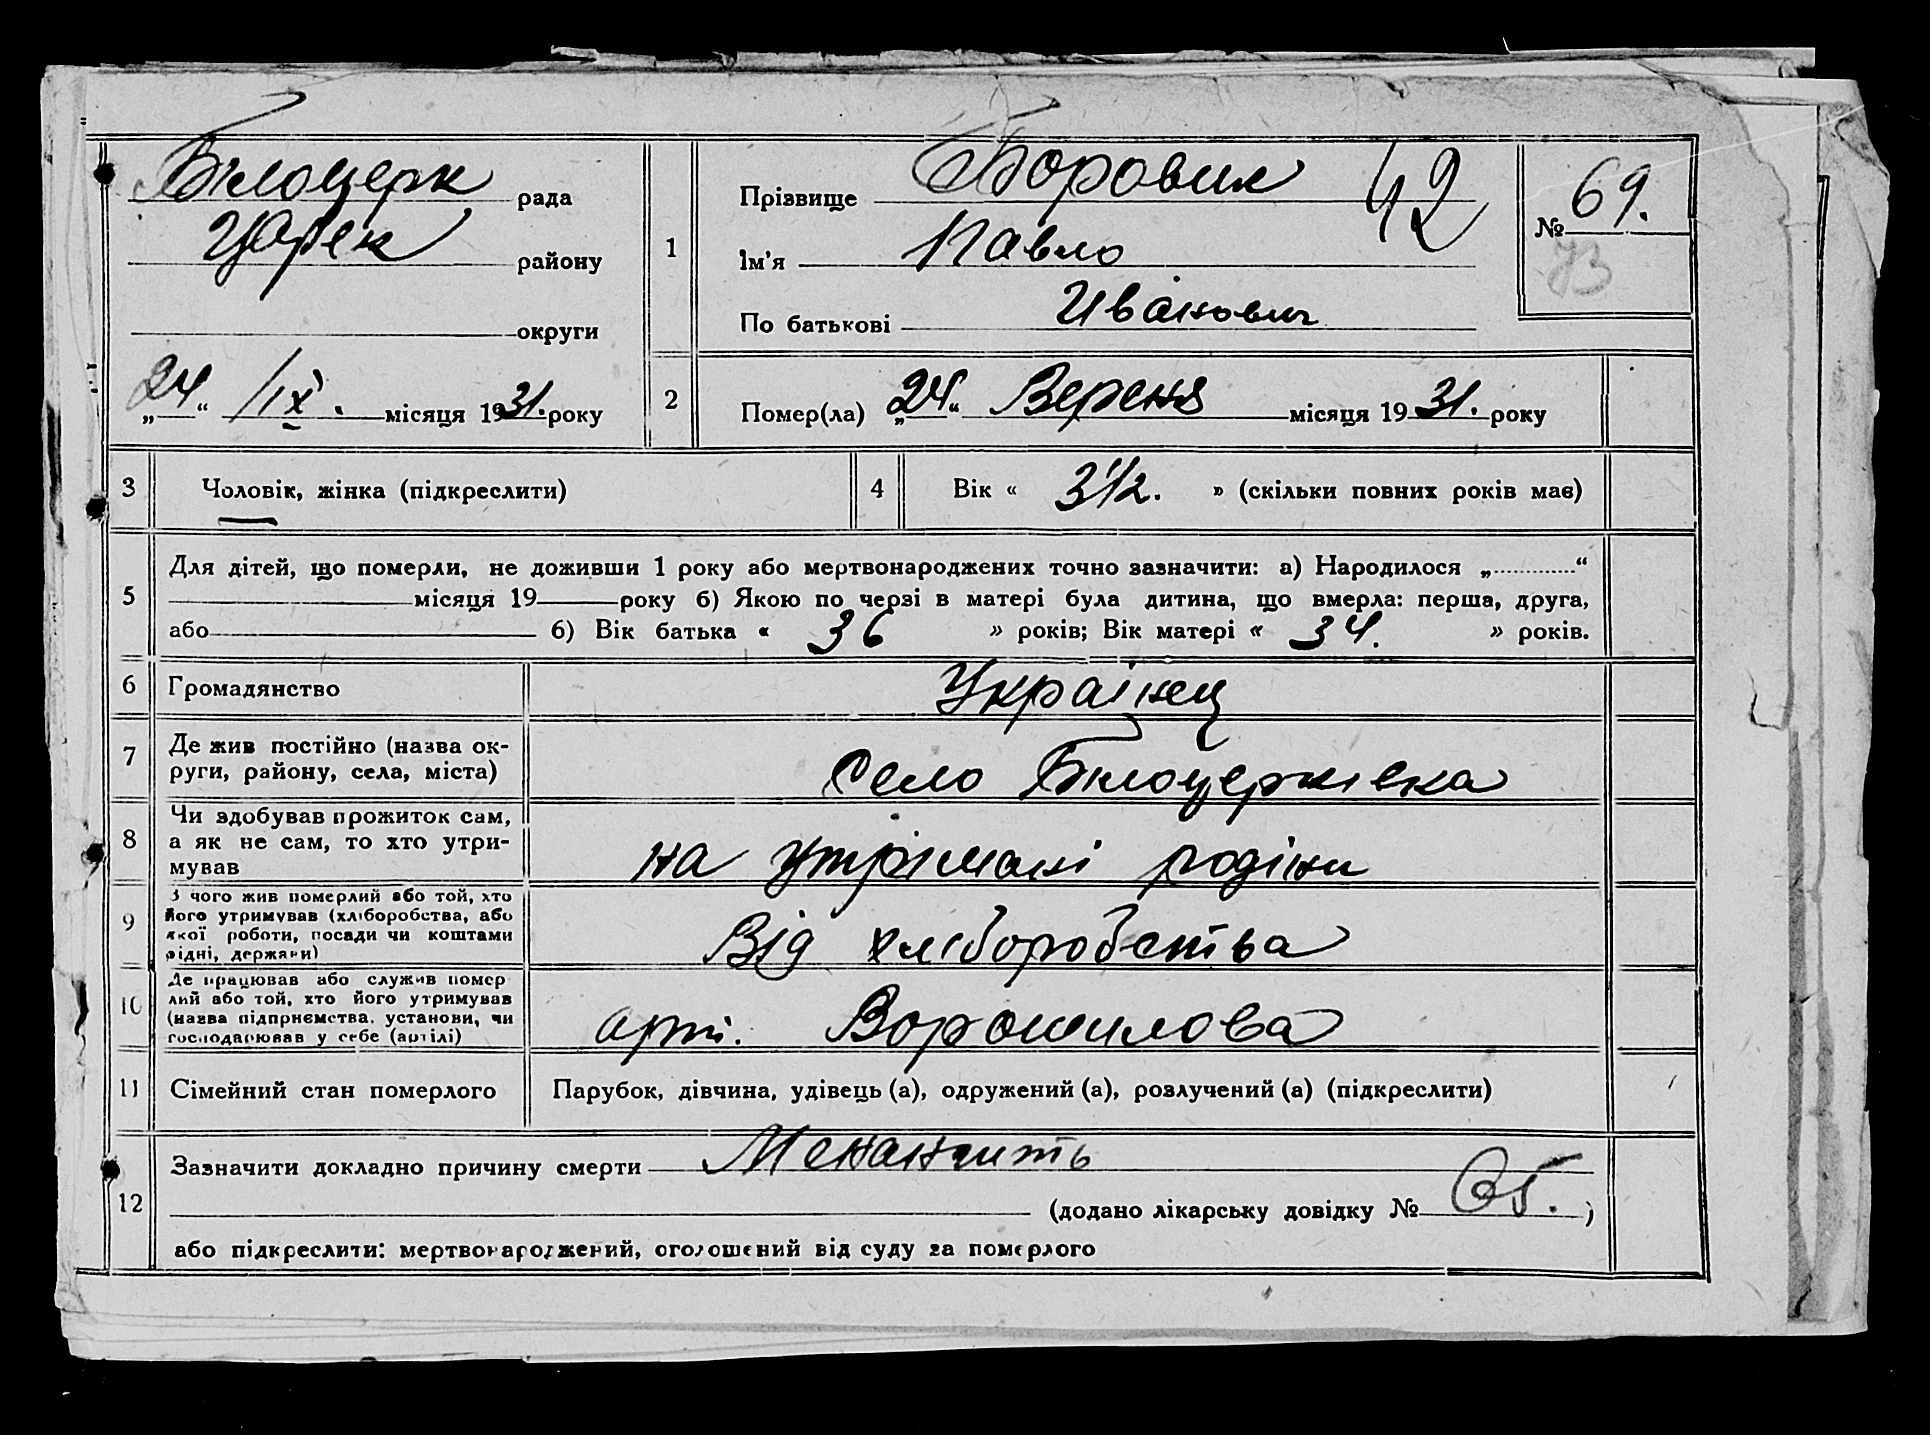 Білоцерк рада
Царек району
округи
„24“ /IX. місяця 1931. року
1
Прізвище Боровик 42
Ім'я Павло
По батькові Иванович
№ 69.
73
2 Помер(ла) „24“ Вереня місяця 1931. року
3 Чоловік, жінка (підкреслити) 4 Вік « 3 1/2. » (скільки повних років має)
5 Для дітей, що померли, не доживши 1 року або мертвонароджених точно зазначити: а) Народилося „ “
місяця 19 року б) Якою по черзі в матері була дитина, що вмерла: перша, друга,
або б) Вік батька « 36 » років; Вік матері « 34. » років.
6 Громадянство Українец
7 Де жив постійно (назва ок-
руги, району, села, міста) Село Білоцерківка
8 Чи здобував прожиток сам,
а як не сам, то хто утри-
мував на утрімані родіни
9 З чого жив померлий або той, хто
його утримував (хліборобства, або
якої роботи, посади чи коштами
рідні, держави) Від хліборобства
10 Де працював або служив помер
лий або той, хто його утримував
(назва підприємства, установи, чи
господарював у себе (артілі) арт. Ворошилова
11 Сімейний стан померлого Парубок, дівчина, удівець (а), одружений (а), розлучений (а) (підкреслити)
12 Зазначити докладно причину смерти Менанжить
(додано лікарську довідку № 65. )
або підкреслити: мертвонароджений, оголошений від суду за померлого